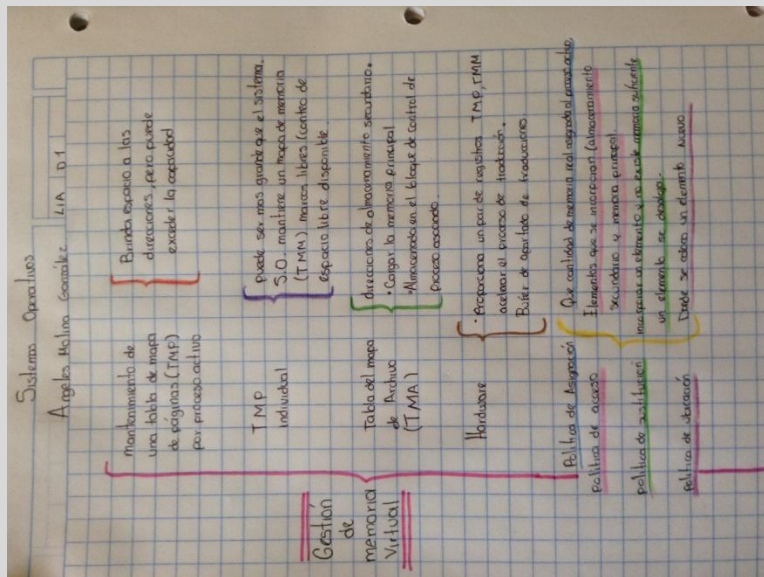 Sistemas Operativos
Angeles Molina González LIA D1
Gestión
de
memoria
Virtual
mantenimiento de
una tabla de mapa
de páginas (TMP)
por proceso activo
Brinda espacio a las
direcciones, pero puede
exceder la capacidad
TMP
individual
puede ser mas grande que el sistema.
S.O. mantiene un mapa de memoria
(TMM) marcos libres (conteo de
espacio libre disponible
Tabla del mapa
de Archivo
(TMA)
direcciones de almacenamiento secundario.
• Cargar la memoria principal
• Almacenada en el bloque de control de
proceso asociado.
Hardware
• Proporciona un par de registros TMP, TMM
acelerar el proceso de traducción.
Búfer de apartado de traducciones
Política de Asignación
Que cantidad de memoria real asignada al proceso activo.
política de acceso
Elementos que se incorporan (almacenamiento
secundario y memoria principal).
política de sustitución
incorporar un elemento y no existe memoria suficiente
un elemento se desaloja.
política de ubicación
Donde se coloca un elemento nuevo